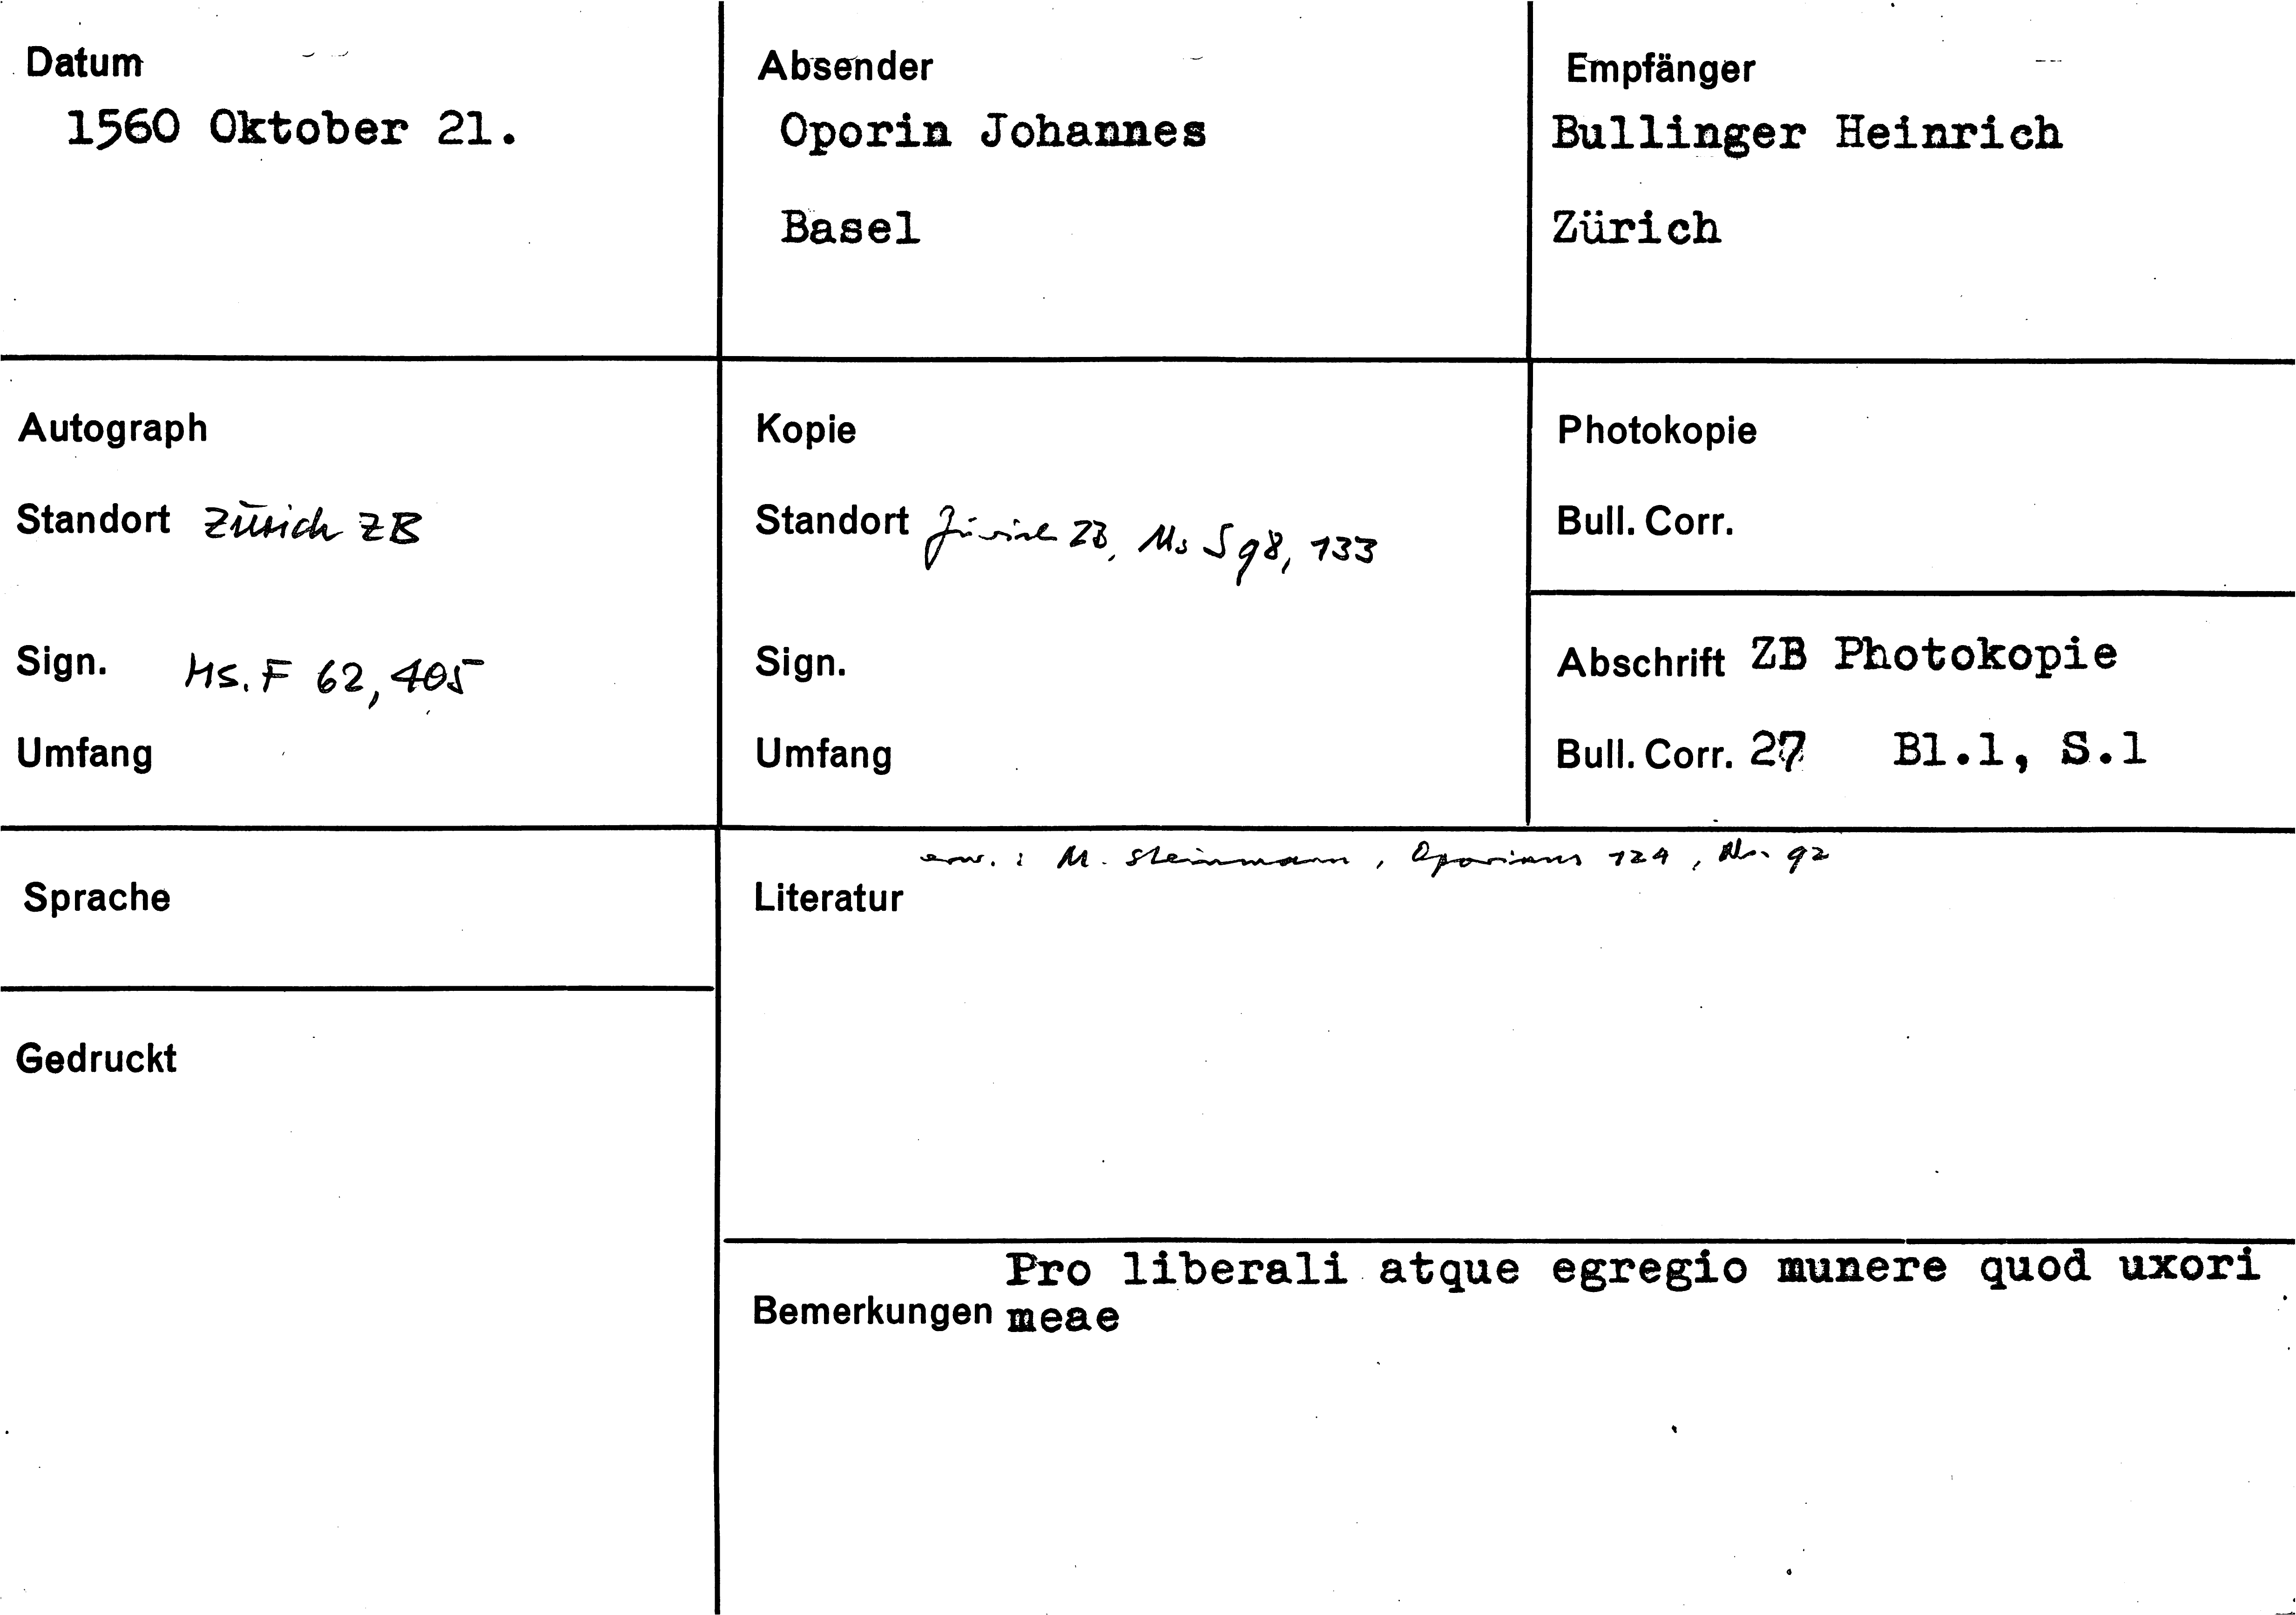 Datum
1560 Oktober 21.
Absender
Oporin Johannes
Basel
Empfänger
Bullinger Heinrich
Zürich
Autograph
Standort Zürich ZB
Sign. Ms. F 62, 405
Umfang
Kopie
Standort Zürich ZB, Ms S 98, 133
Sign.
Umfang
Photokopie
Bull. Corr.
Abschrift ZB Photokopie
Bull. Corr. 27 Bl.1, S.1
Sprache
Gedruckt
erw. : M. Steinmann, Oporinus 124, Nr. 92
Literatur
Pro liberali atque egregio munere quod uxori
Bemerkungen meae